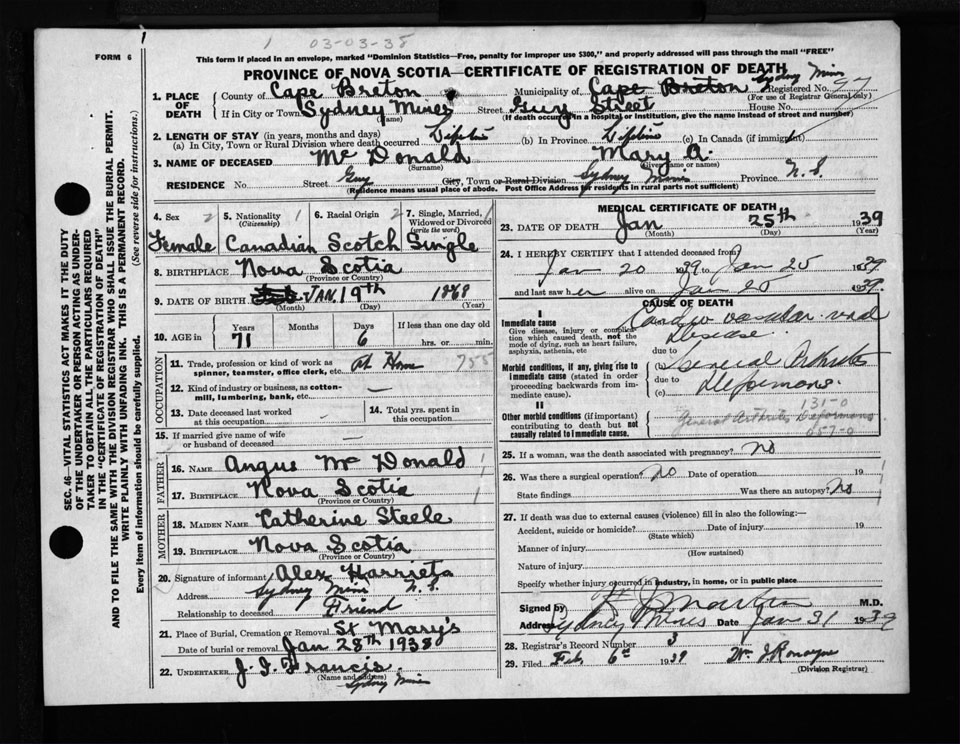 1 03-03-38
1
FORM 6
This form if placed in an envelope, marked "Dominion Statistics—Free, penalty for improper use $300," and properly addressed will pass through the mail "FREE"
PROVINCE OF NOVA SCOTIA—CERTIFICATE OF REGISTRATION OF DEATH
Sydney Mines
1. PLACE OF DEATH
County of Cape Breton Municipality of Cape Breton Registered No. 97
(For use of Registrar General only)
If in City or Town Sydney Mines Street Guy Street House No.
(Name) (If death occurred in a hospital or institution, give the name instead of street and number)
2. LENGTH OF STAY (in years, months and days)
(a) In City, Town or Rural Division where death occurred Lifetime (b) In Province Lifetime (c) In Canada (if immigrant)
3. NAME OF DECEASED Mc Donald Mary A.
(Surname) (Given name or names)
RESIDENCE No. Street Guy City, Town or Rural Division Sydney Mines Province N. S.
(Residence means usual place of abode. Post Office Address for residents in rural parts not sufficient)
4. Sex 2 5. Nationality 1 6. Racial Origin 2 7. Single, Married, 1
(Citizenship) Widowed or Divorced
(write the word)
Female Canadian Scotch Single
8. BIRTHPLACE Nova Scotia
(Province or Country)
9. DATE OF BIRTH JAN. 19th 1868
(Month) (Day) (Year)
10. AGE in Years Months Days If less than one day old
71 6 hrs. or min.
OCCUPATION
11. Trade, profession or kind of work as At Home 755
spinner, teamster, office clerk, etc.
12. Kind of industry or business, as cotton- —
mill, lumbering, bank, etc.
13. Date deceased last worked — 14. Total yrs. spent in
at this occupation this occupation
15. If married give name of wife —
or husband of deceased
FATHER
16. NAME Angus Mc Donald
17. BIRTHPLACE Nova Scotia
(Province or Country)
MOTHER
18. MAIDEN NAME Catherine Steele
19. BIRTHPLACE Nova Scotia
(Province or Country)
20. Signature of informant Alex Harriets
Address Sydney Mines N. S.
Relationship to deceased Friend
21. Place of Burial, Cremation or Removal St Mary's
Date of burial or removal Jan 28th 1938
22. UNDERTAKER J. J. Francis.
(Name and address)
Sydney Mines
MEDICAL CERTIFICATE OF DEATH
23. DATE OF DEATH Jan 25th 1939
(Month) (Day) (Year)
24. I HEREBY CERTIFY that I attended deceased from
Jan 20 1939 to Jan 25 1939.
and last saw her alive on Jan 25 1939.
CAUSE OF DEATH
I
Immediate cause
Give disease, injury or complication which caused death, not the mode of dying, such as heart failure, asphyxia, asthenia, etc
Cardio vascular renal
Disease
due to
Morbid conditions, if any, giving rise to immediate cause (stated in order proceeding backwards from immediate cause).
General Arthritis
due to
Deformans.
(c)
II
131-0
Other morbid conditions (if important) contributing to death but not causally related to immediate cause.
General Arthritis Deformans
057-0
25. If a woman, was the death associated with pregnancy? No
26. Was there a surgical operation? No Date of operation 19
State findings Was there an autopsy? No
27. If death was due to external causes (violence) fill in also the following:—
Accident, suicide or homicide? Date of injury 19
(State which)
Manner of injury
(How sustained)
Nature of injury
Specify whether injury occurred in industry, in home, or in public place
Signed by M.D.
Address Sydney Mines Date Jan 31 1939
28. Registrar's Record Number 3
29. Filed Feb 6th 1939 Wm J Ronayne
(Division Registrar)
SEC. 46—VITAL STATISTICS ACT MAKES IT THE DUTY
OF THE UNDERTAKER OR PERSON ACTING AS UNDER-
TAKER TO OBTAIN ALL THE PARTICULARS REQUIRED
IN THE "CERTIFICATE OF REGISTRATION OF DEATH"
AND TO FILE THE SAME WITH THE DIVISION REGISTRAR WHO SHALL ISSUE THE BURIAL PERMIT.
WRITE PLAINLY WITH UNFADING INK. THIS IS A PERMANENT RECORD.
Every item of information should be carefully supplied. (See reverse side for instructions.)